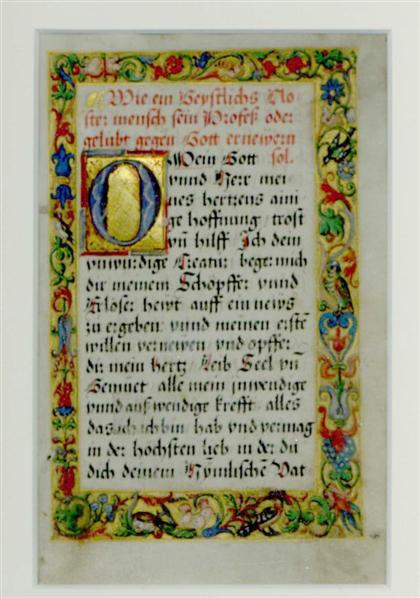 Wie ein Geystlichs Klo
ster mensch sein Profeß oder
gelübt gegen Gott ernewern
O Mein Gott sol.
vnnd Herr mei
nes hertzens aini
ge hoffnung, trost
vn̄ hilff Ich dein
vnwurdige Creatur beger mich
dir meinem Schöpffer vnnd
Erloser hewt auff ein news
zu ergeben vnnd meinen erstē
willen vernewen vnd opffer
dir mein hertz Leib Seel vn̄
Gemüet alle mein inwendige
vnnd auß wendige krefft alles
das ich ich bin hab vnd vermag
in der hochsten lieb in der dü
dich deinem Hymlischē Vat